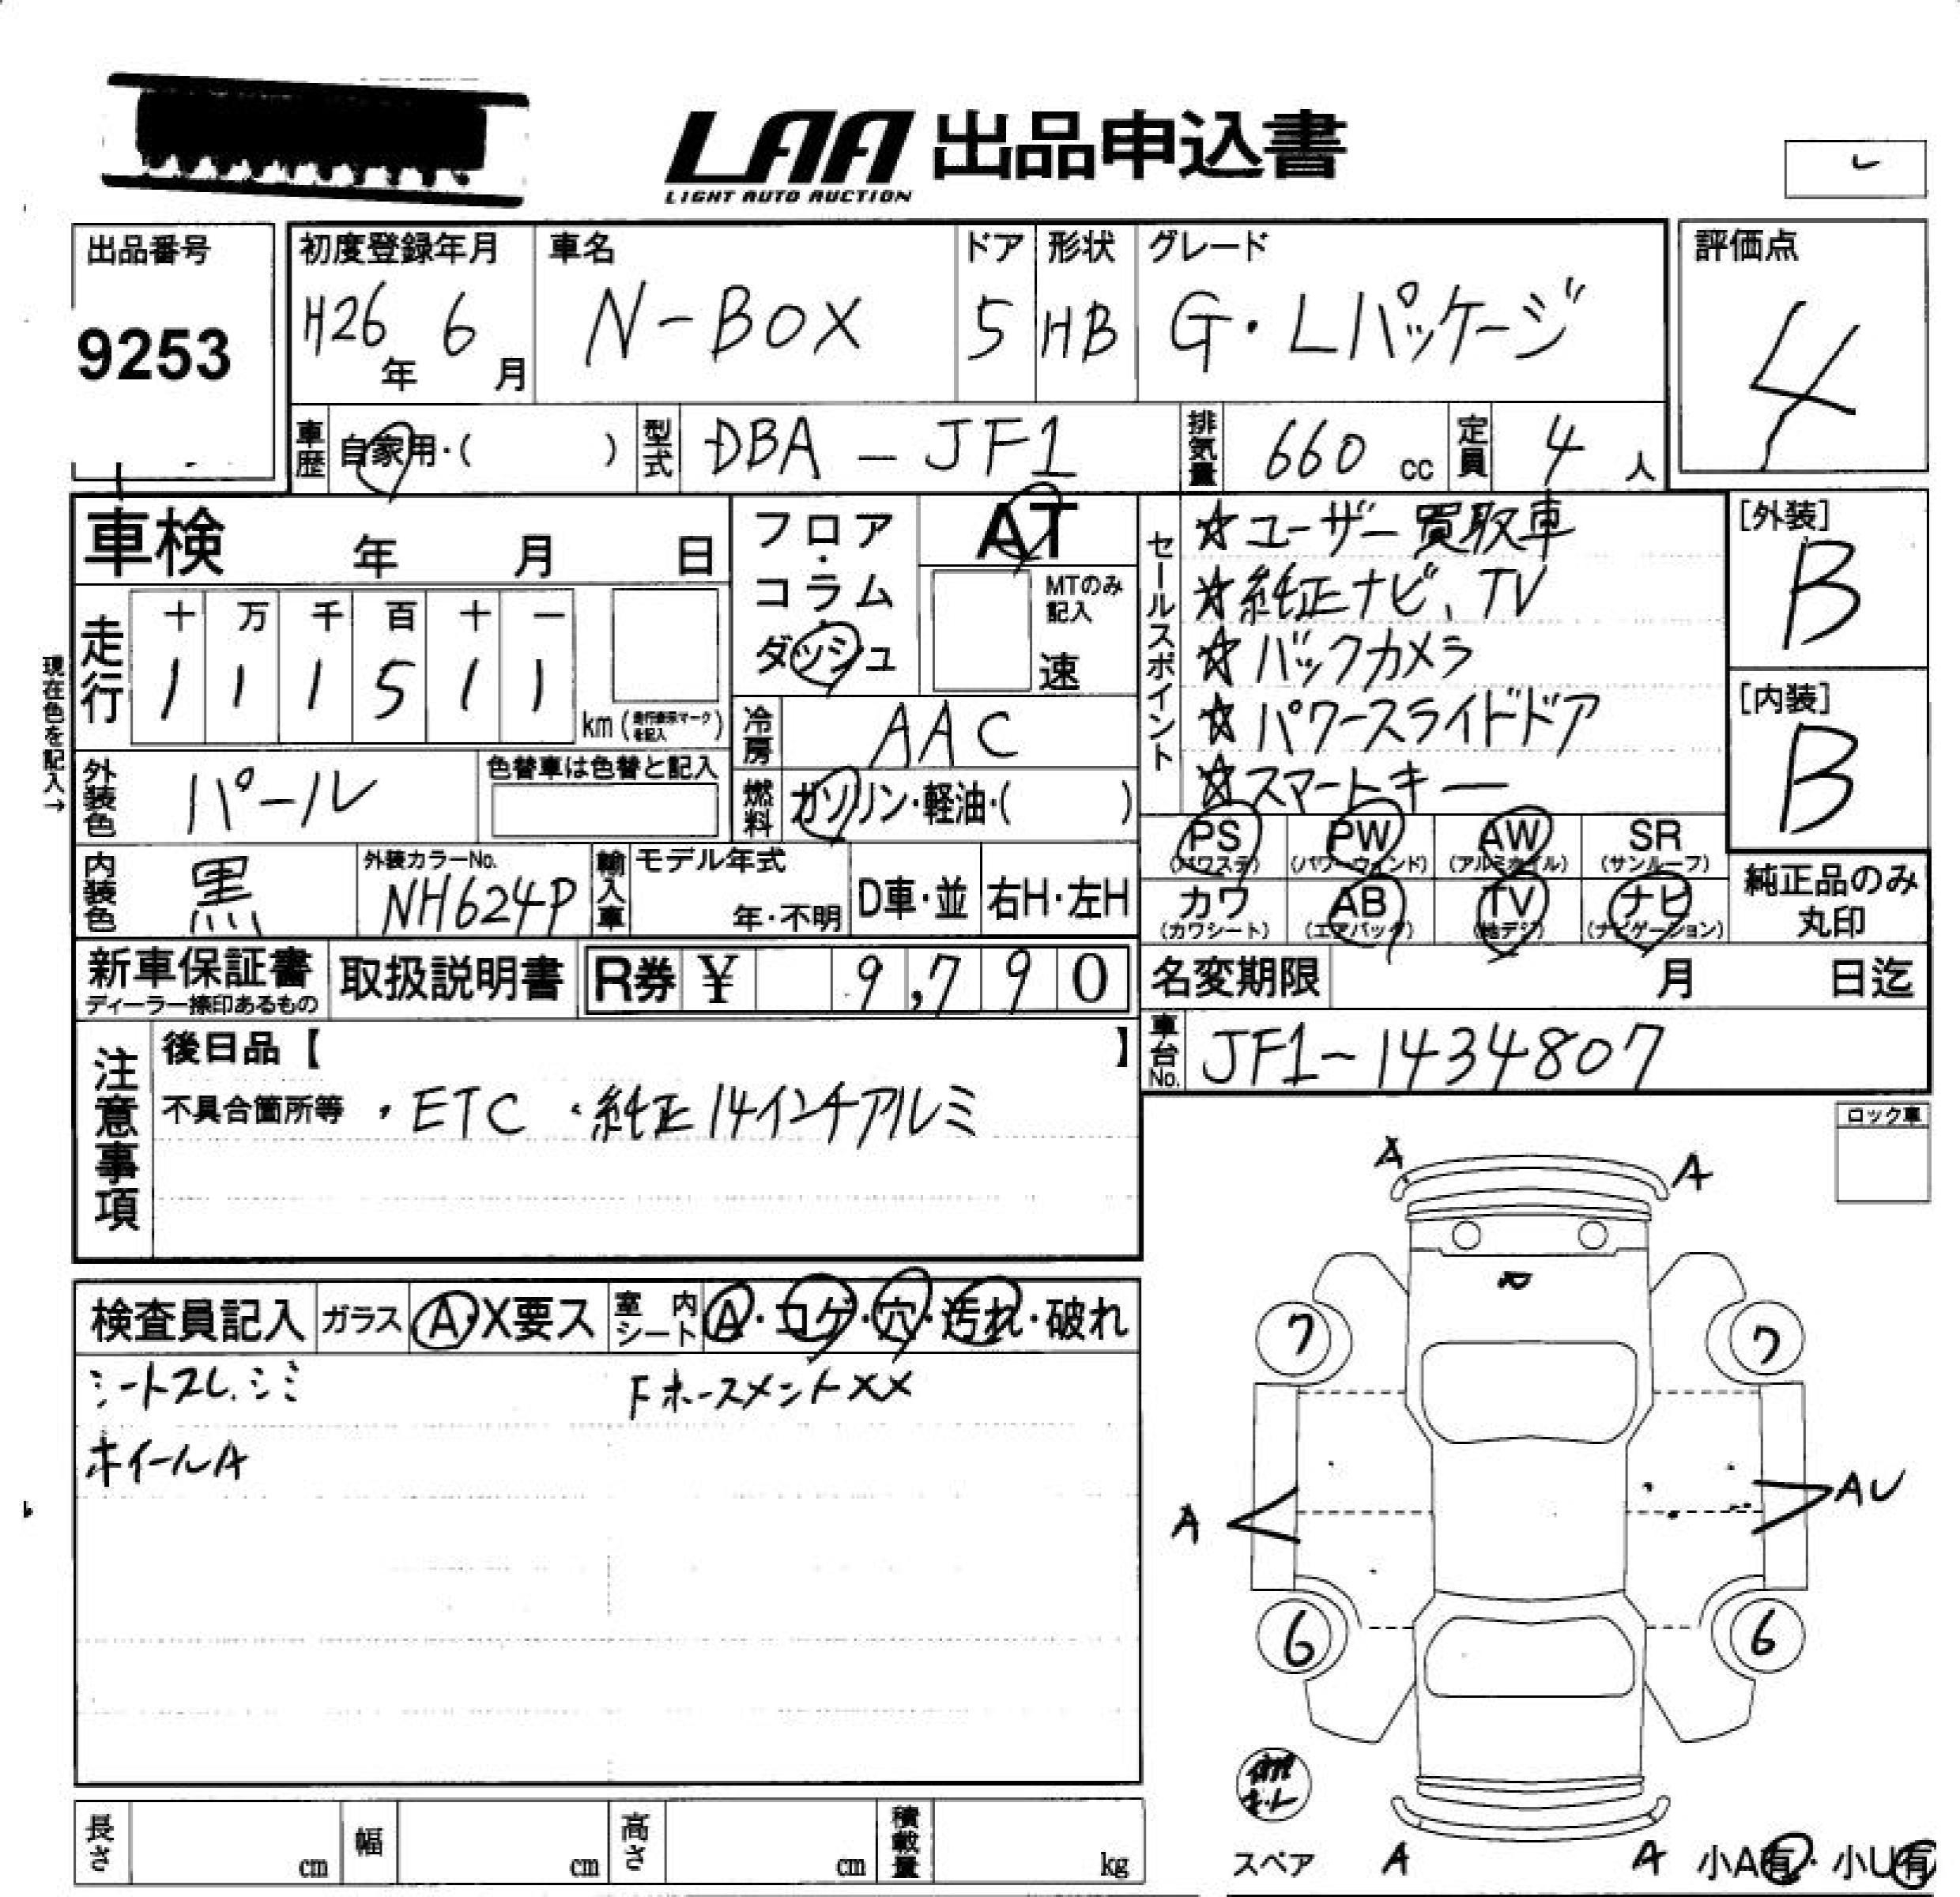 LAA 出品申込書
LIGHT AUTO AUCTION
出品番号
9253
初度登録年月
H26年 6月
車名
N-BOX
ドア
5
形状
HB
グレード
G・Lパッケージ
評価点
4
車歴 自家用・( )
型式 DBA-JF1
排気量 660 cc
定員 4 人
車検 年 月 日
フロア・コラム・ダッシュ
AT
MTのみ記入
速
セールスポイント
☆ユーザー買取車
☆純正ナビ、TV
☆バックカメラ
☆パワースライドドア
☆スマートキー
[外装]
B
[内装]
B
現在色を記入→
走行
十 万 千 百 十 一
1 1 1 5 1 1
km(走行表示マークを記入)
冷房 AAC
外装色 パール
色替車は色替と記入
燃料 ガソリン・軽油・( )
PS (パワステ)
PW (パワーウィンド)
AW (アルミホイル)
SR (サンルーフ)
カワ (カワシート)
AB (エアバッグ)
TV (地デジ)
ナビ (ナビゲーション)
純正品のみ丸印
内装色 黒
外装カラーNo.
NH624P
輸入車
モデル年式
年・不明
D車・並
右H・左H
新車保証書
ディーラー捺印あるもの
取扱説明書
R券 ¥ 9,790
名変期限 月 日迄
車台No. JF1-1434807
注意事項
後日品【 】
不具合箇所等 ・ETC ・純正14インチアルミ
ロック車
検査員記入
ガラス A・X要ス
室内シート A・コゲ・穴・汚れ・破れ
シートスレ、シミ
Fホースメント××
ホイールA
A A
7 7
A AU
6 6
スペア
A A
小A有・小U有
長さ cm
幅 cm
高さ cm
積載量 kg